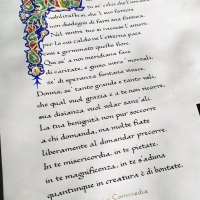 tu se' colei che l'uma
nobilitasti sì, che 'l suo fattore
non disdegnò di farsi sua fattura.
Nel ventre tuo si raccese l'amore,
per lo cui caldo ne l'etterna pace
così è germinato questo fiore.
Qui se' a noi meridiana face
di caritate, e giuso, intra ' mortali,
se' di speranza fontana vivace.
Donna, se' tanto grande e tanto vali,
che qual vuol grazia e a te non ricorre,
sua disianza vuol volar sanz' ali.
La tua benignità non pur soccorre
a chi domanda, ma molte fiate
liberamente al dimandar precorre.
In te misericordia, in te pietate,
in te magnificenza, in te s'aduna
quantunque in creatura è di bontate.
Commedia